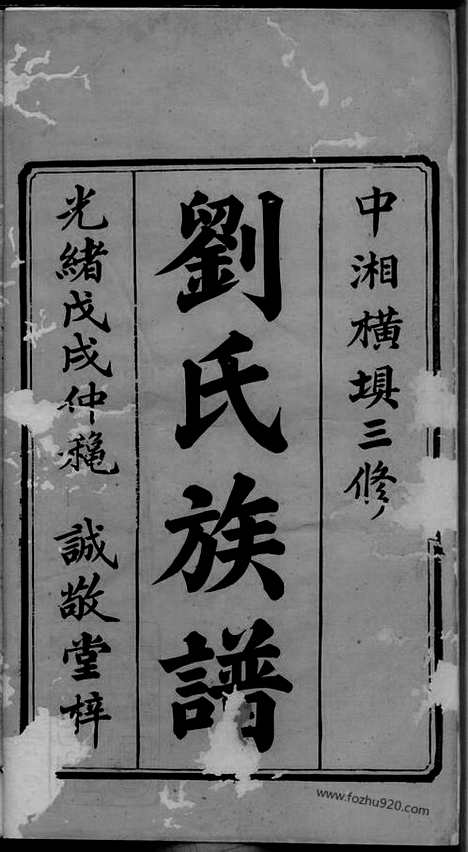 中湘橫垻三修
劉氏族譜
光緒戊戌仲龝 誠敬堂梓
www.fozhu920.com